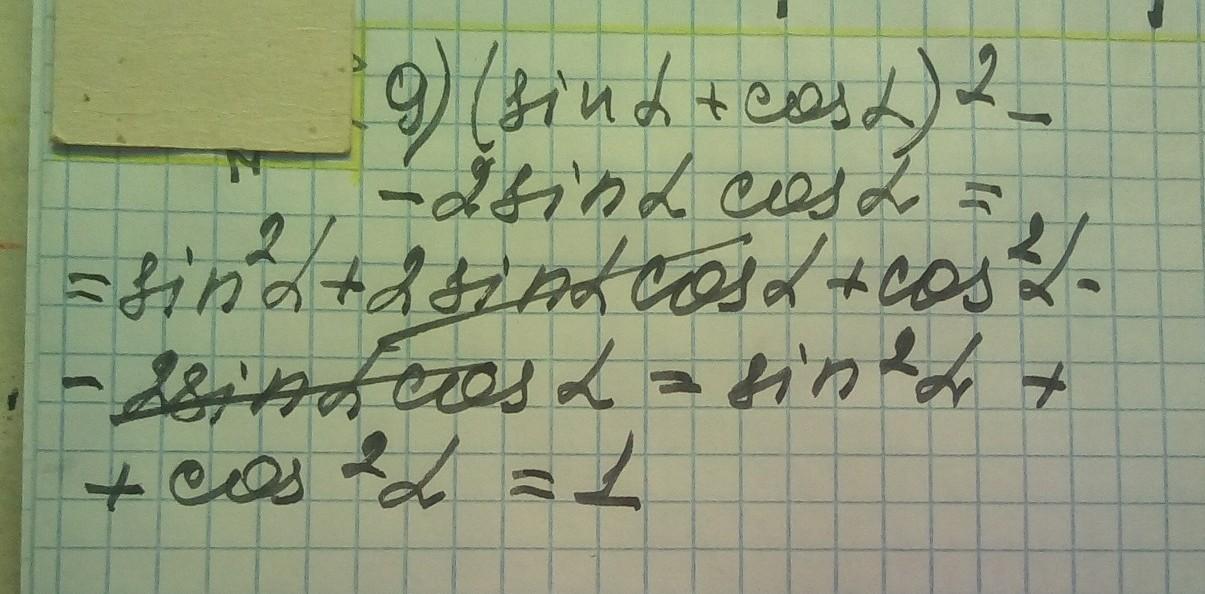 9) (sin α + cos α)² -
- 2 sin α cos α =
= sin² α + 2 sin α cos α + cos² α -
- 2 sin α cos α = sin² α +
+ cos² α = 1